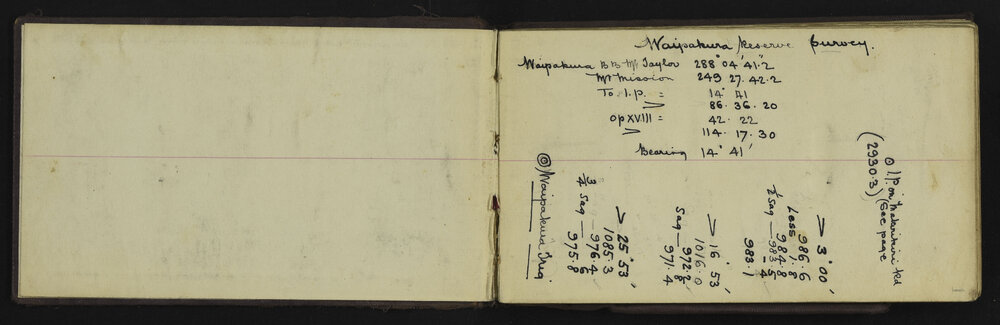 Waipakura Reserve Survey.
Waipakura BB Mt Taylor 288° 04' 41".2
Mt Mission 249 27. 42.2
To I.P. = 14° 41
86. 36. 20
op XVIII = 42. 22
114. 17. 30
Bearing 14° 41'
⊙ I.P. on Rd
(2930.3) (see page
> 3° 00'
986.6
Less 1.8
984.8
½ Sag — 983.5
983.1
> 16° 53'
1016.0
Sag — 972.2
971.4
> 25° 53'
1085.3
— 976.4
¾ Sag — 6
975.8
⊙ Waipakura Trig.